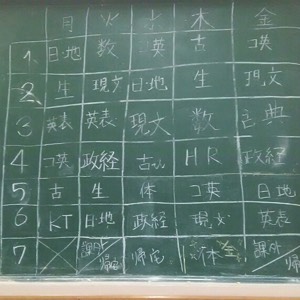 月 火 水 木 金
1 日・地 数 コ英 古 コ英
2 生 現文 日・地 生 現文
3 英表 英表 現文 数 古典
4 コ英 政経 HR 政経
5 古 生 体 コ英 日地
6 KT 日地 政経 現文 英表
7 課外/帰宅 帰宅 課外/帰